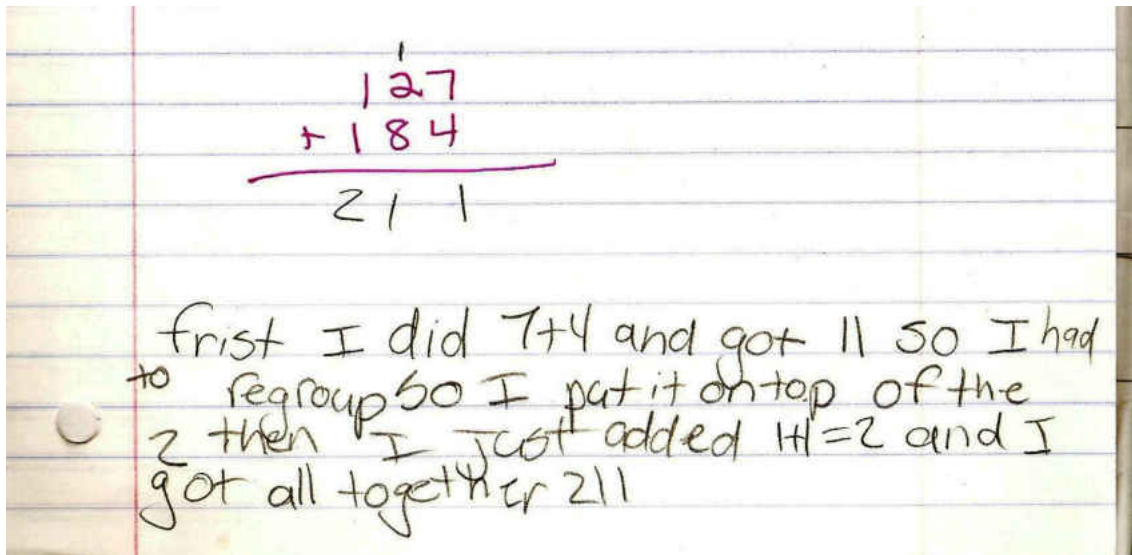 1
127
+ 184
211
frist I did 7+4 and got 11 so I had
to regroup so I put it on top of the
2 then I just added 1+1=2 and I
got all together 211